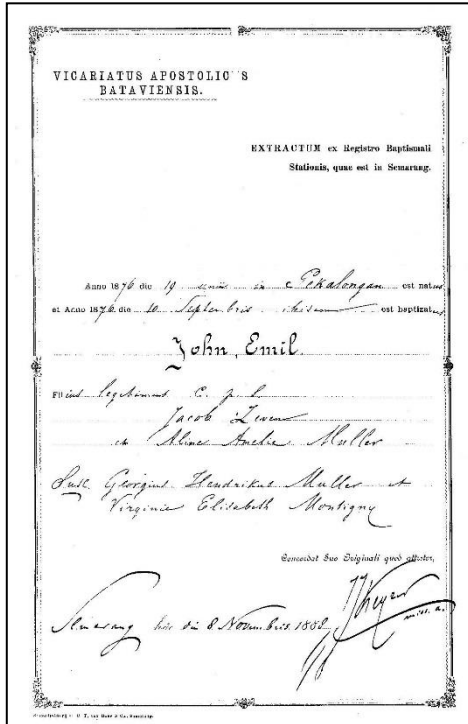 VICARIATUS APOSTOLICUS
BATAVIENSIS.
EXTRACTUM ex Registro Baptismali
Stationis, quae est in Semarang.
Anno 1876 die 19 in Pekalongan est natus
et Anno 1876 die 10 Septembris est baptizatus
John Emil
Filius legitimus C. p. l.
Jacob
en Aline Amelie Muller
Susc. Georgius Hendrikus Muller et
Virginie Elisabeth Montigny
Concordat Suo Originali quod attestor,
miss. a.
Semarang hac die 8 Novembris 1888